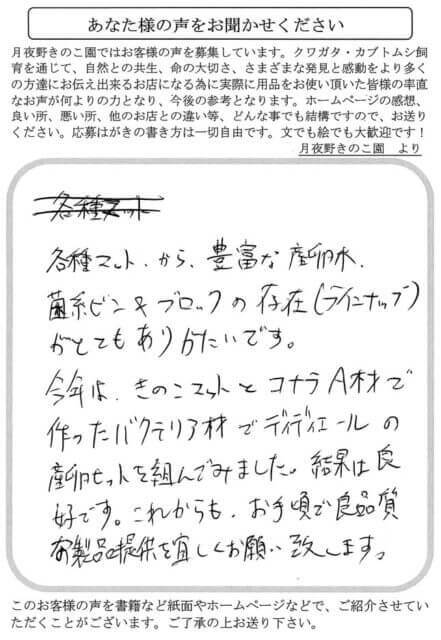 あなた様の声をお聞かせください
月夜野きのこ園ではお客様の声を募集しています。クワガタ・カブトムシ飼
育を通じて、自然との共生、命の大切さ、さまざまな発見と感動をより多く
の方達にお伝え出来るお店になる為に実際に用品をお使い頂いた皆様の率直
なお声が何よりの力となり、今後の参考となります。ホームページの感想、
良い所、悪い所、他のお店との違い等、どんな事でも結構ですので、お送り
ください。応募はがきの書き方は一切自由です。文でも絵でも大歓迎です！
月夜野きのこ園　より
各種マット
各種マット、から、豊富な産卵木、
菌糸ビン&ブロックの存在(ラインナップ)
がとてもありがたいです。
今年は、きのこマットとコナラA材で
作ったバクテリア材でディディエールの
産卵セットを組んでみました。結果は良
好です。これからも、お手頃で良品質
な製品提供を宜しくお願い致します。
このお客様の声を書籍など紙面やホームページなどで、ご紹介させてい
ただくことがございます。ご了承の上お送り下さい。